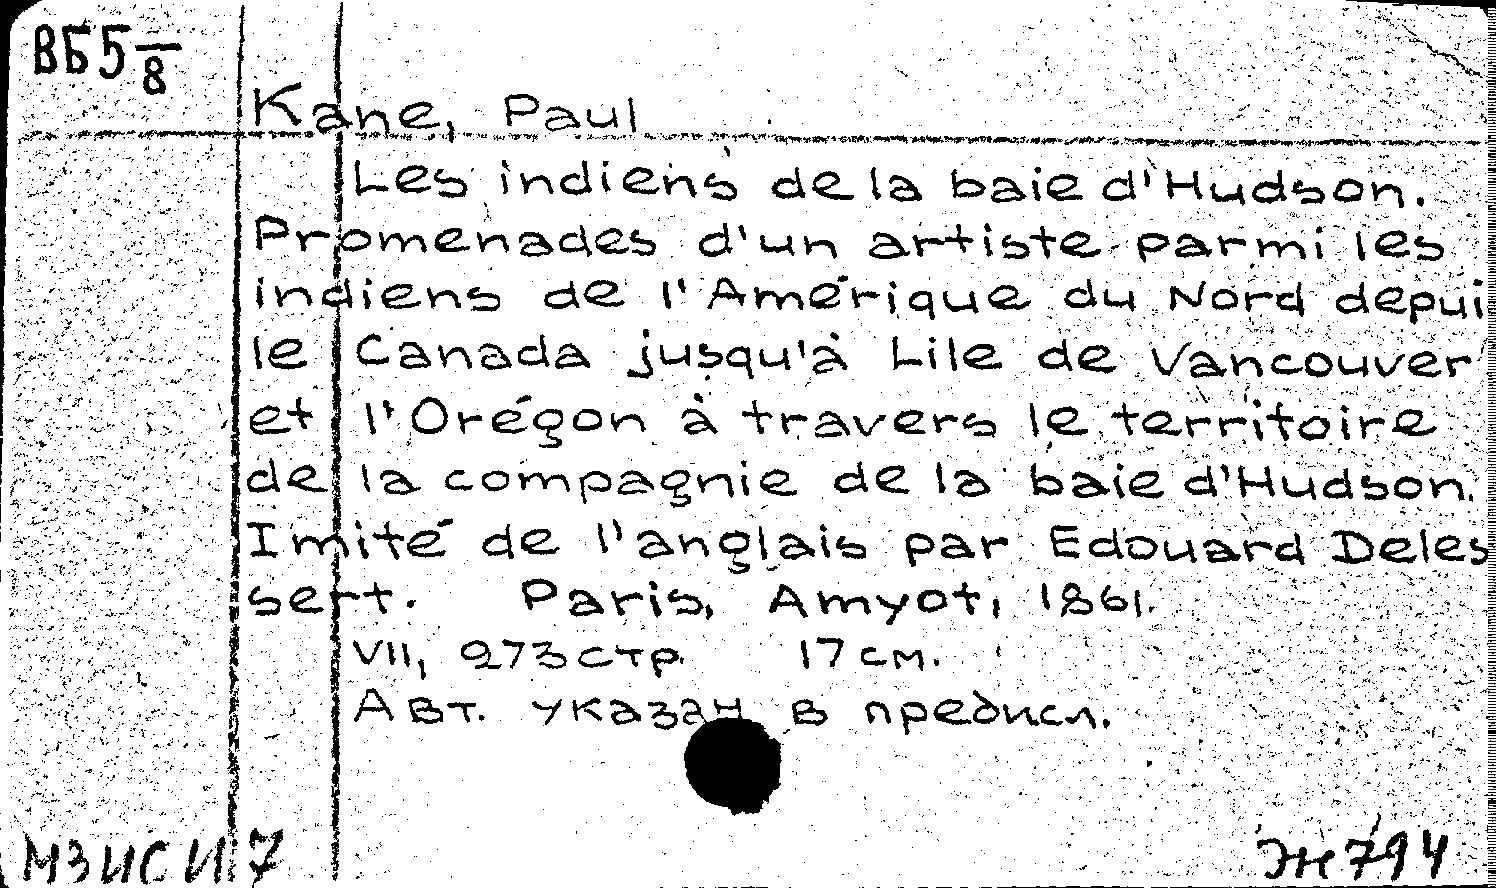 ВБ5 8
Kane, Paul
Les indiens de la baie d'Hudson.
Promenades d'un artiste parmi les
indiens de l'Amérique du Nord depui
le Canada jusqu'à Lile de Vancouver
et l'Orégon à travers le territoire
de la compagnie de la baie d'Hudson.
Imité de l'anglais par Edouard Deles
sert. Paris, Amyot, 1861.
VII, 273 стр. 17 см.
Авт. указан в предисл.
МЗИСИ 7
Ж794